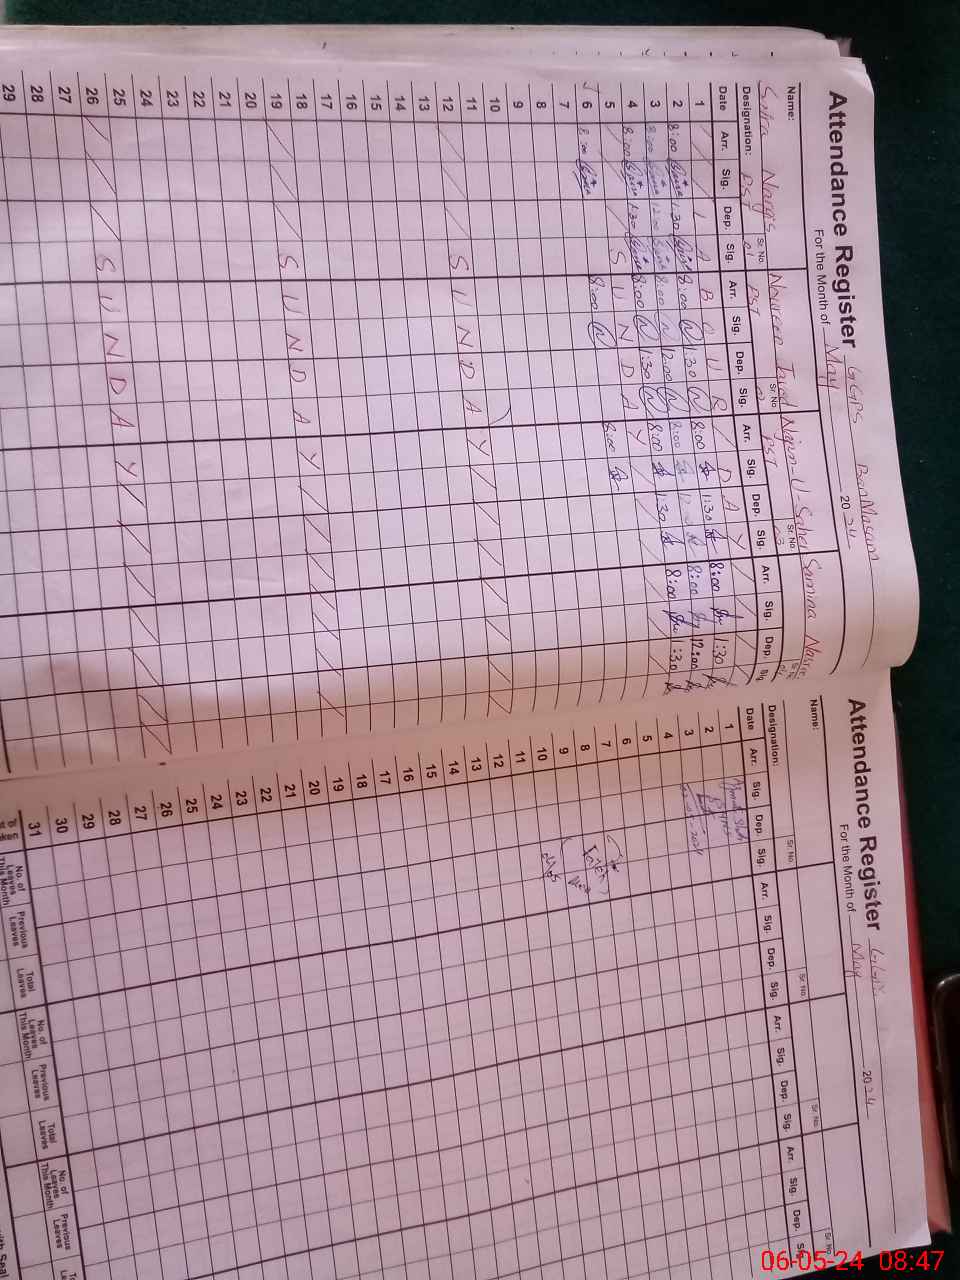 Attendance Register GGPS Ban Masam
For the Month of May 2024
Name: Safra Nargis Noureen Javed Najm-U-Saher Samina Nasir
Sr. No. 01 Sr. No. 02 Sr. No. 03 Sr. No. 04
Designation: PST PST PST
Date Arr. Sig. Dep. Sig. Arr. Sig. Dep. Sig. Arr. Sig. Dep. Sig. Arr. Sig. Dep. Sig.
1 L A B O U R D A Y
2 8:00 1:30 8:00 1:30 8:00 1:30 8:00 1:30
3 8:00 12:00 8:00 12:00 8:00 12:00 8:00 12:00
4 8:00 1:30 8:00 1:30 8:00 1:30 8:00 1:30
5 S U N D A Y
6 8:00 8:00 8:00
7
8
9
10
11
12 S U N D A Y
13
14
15
16
17
18
19 S U N D A Y
20
21
22
23
24
25
26 S U N D A Y
27
28
29
Attendance Register
For the Month of May 2024
Name:
Sr. No. Sr. No. Sr. No. Sr. No.
Designation:
Date Arr. Sig. Dep. Sig. Arr. Sig. Dep. Sig. Arr. Sig. Dep. Sig. Arr. Sig. Dep. Sig.
1
2
3
4
5
6
7
8
9
10
11
12
13
14
15
16
17
18
19
20
21
22
23
24
25
26
27
28
29
30
31
No. of Leaves This Month Previous Leaves Total Leaves No. of Leaves This Month Previous Leaves Total Leaves No. of Leaves This Month Previous Leaves
06-05-24 08:47